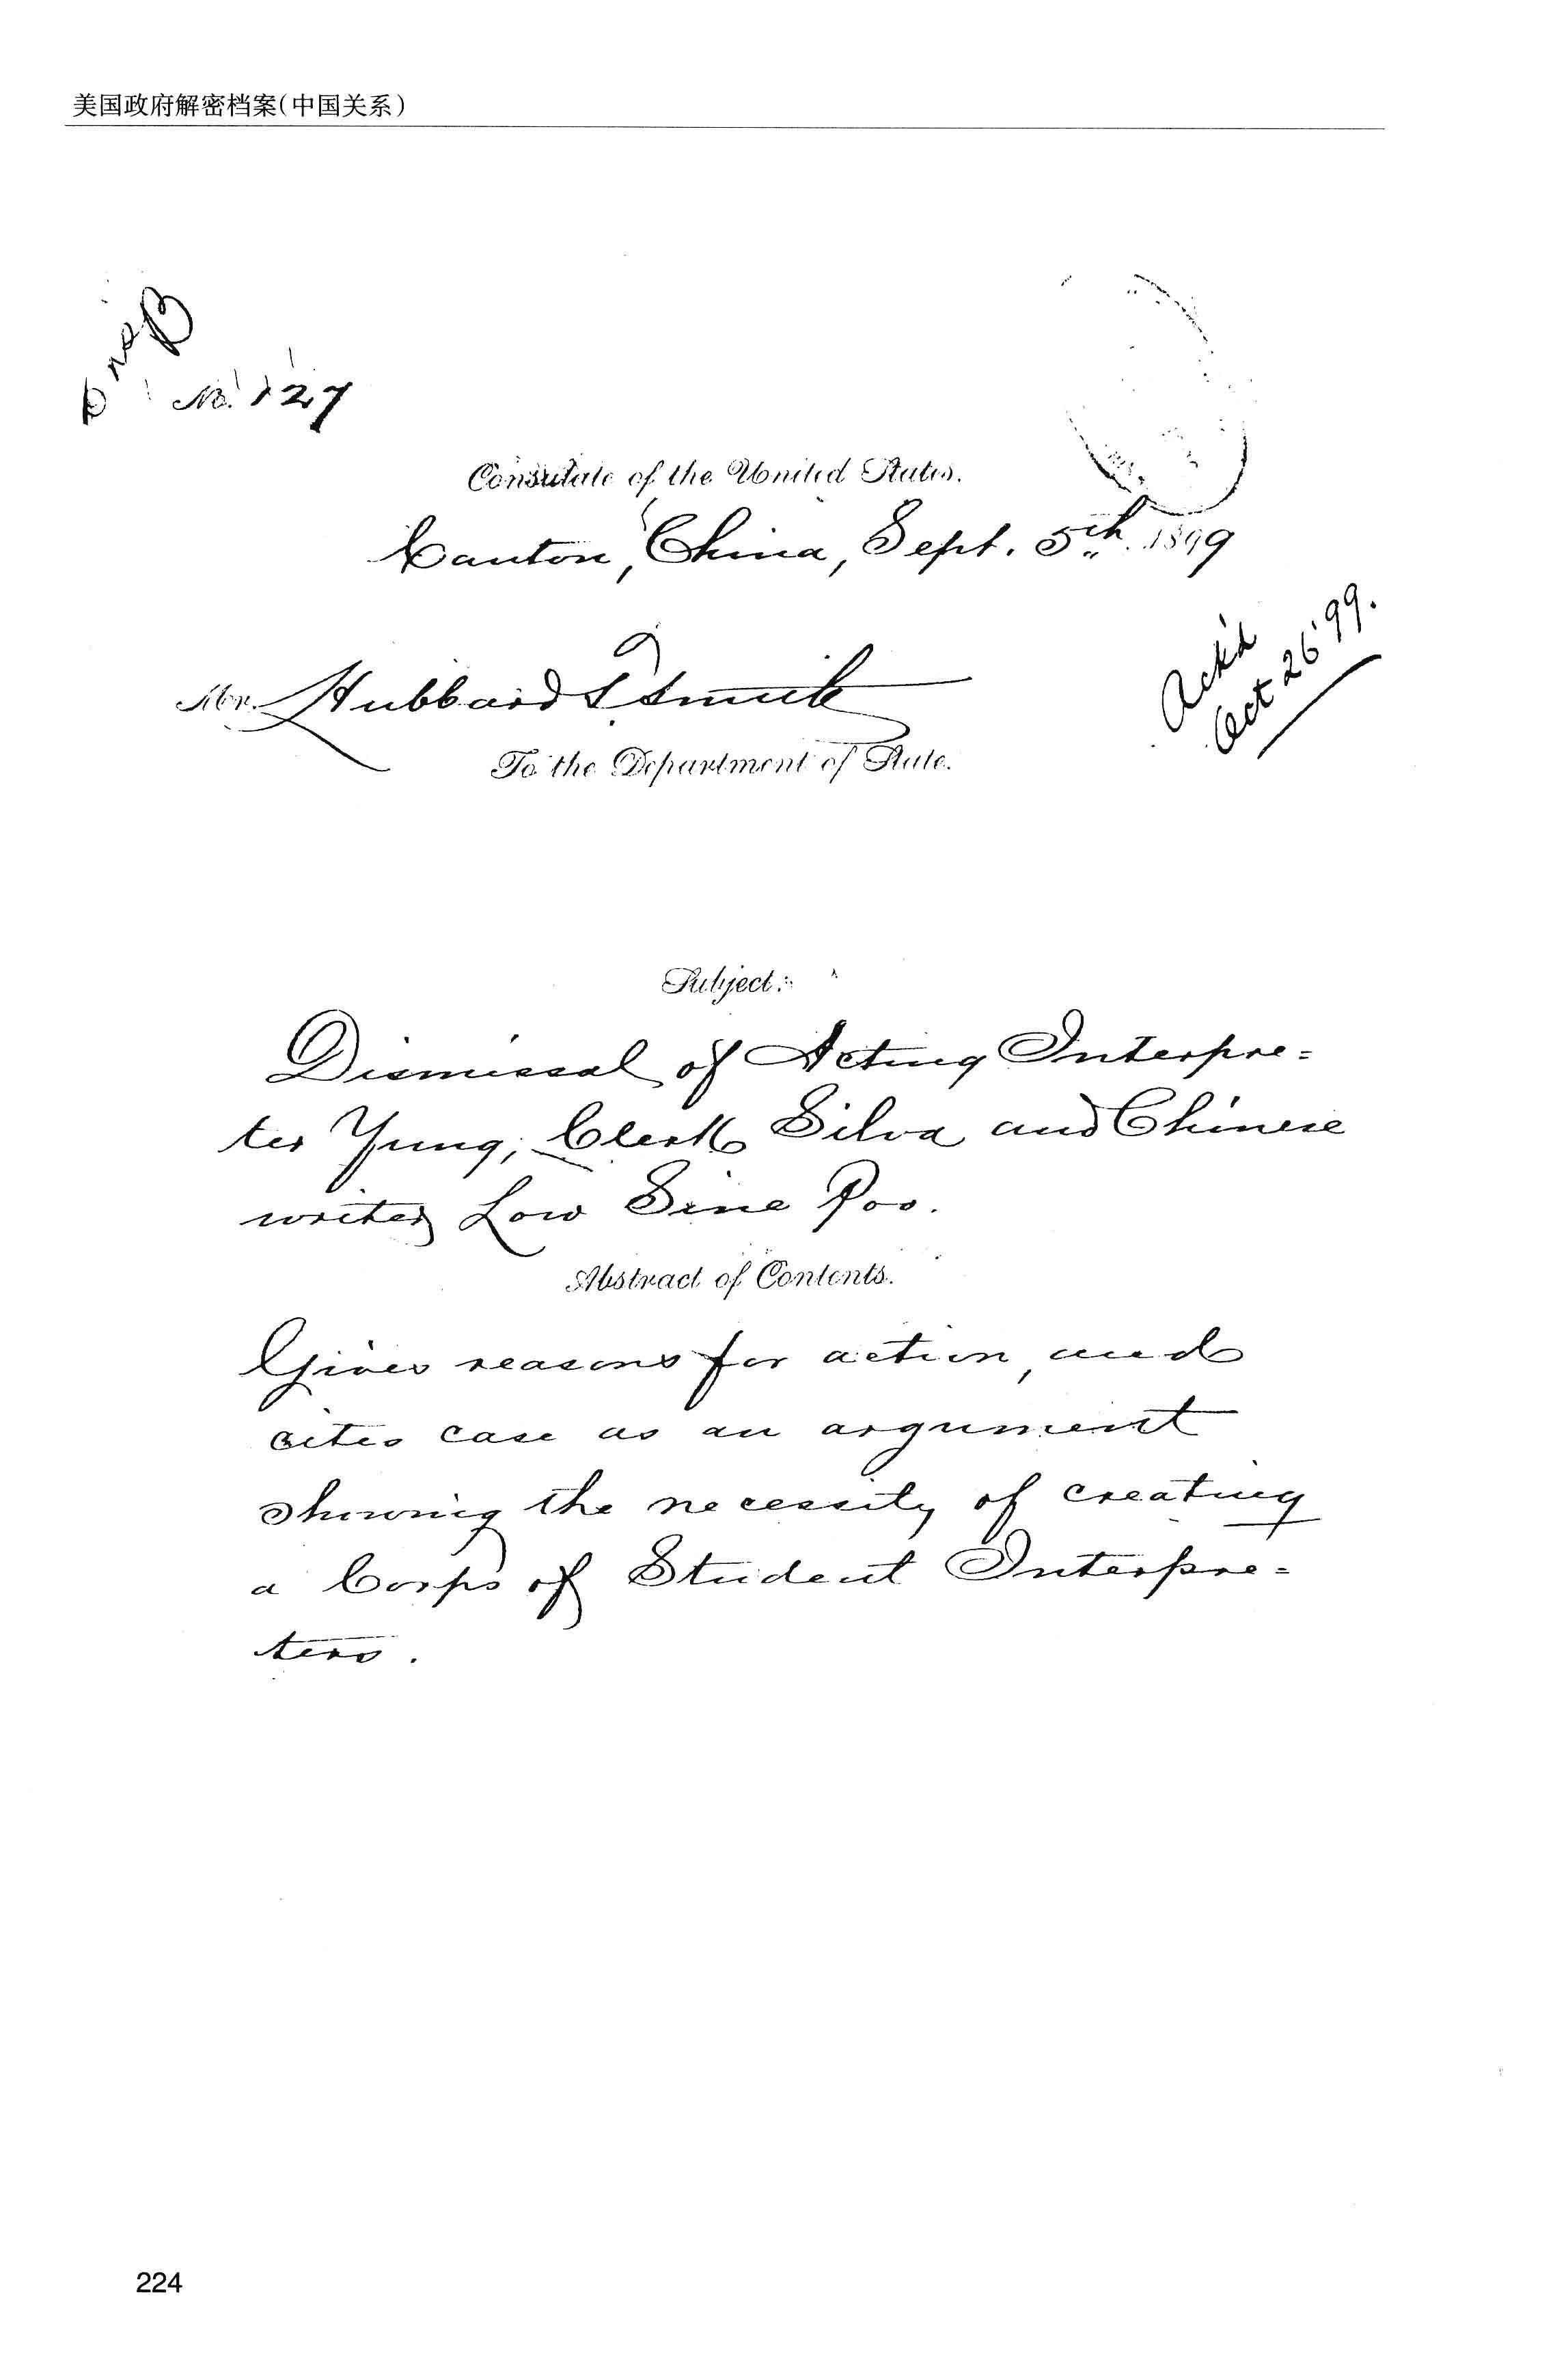 美国政府解密档案(中国关系)
No. 127
Consulate of the United States.
Canton, China, Sept. 5th. 1899
Mr. Hubbard T. Smith
To the Department of State.
Ack'd
Oct 26 '99.
Subject:
Dismissal of Acting Interpre=
ter Yung, Clerk Silva and Chinese
writer Low Sine Poo.
Abstract of Contents.
Gives reasons for action, and
cites case as an argument
showing the necessity of creating
a Corps of Student Interpre=
ters.
224